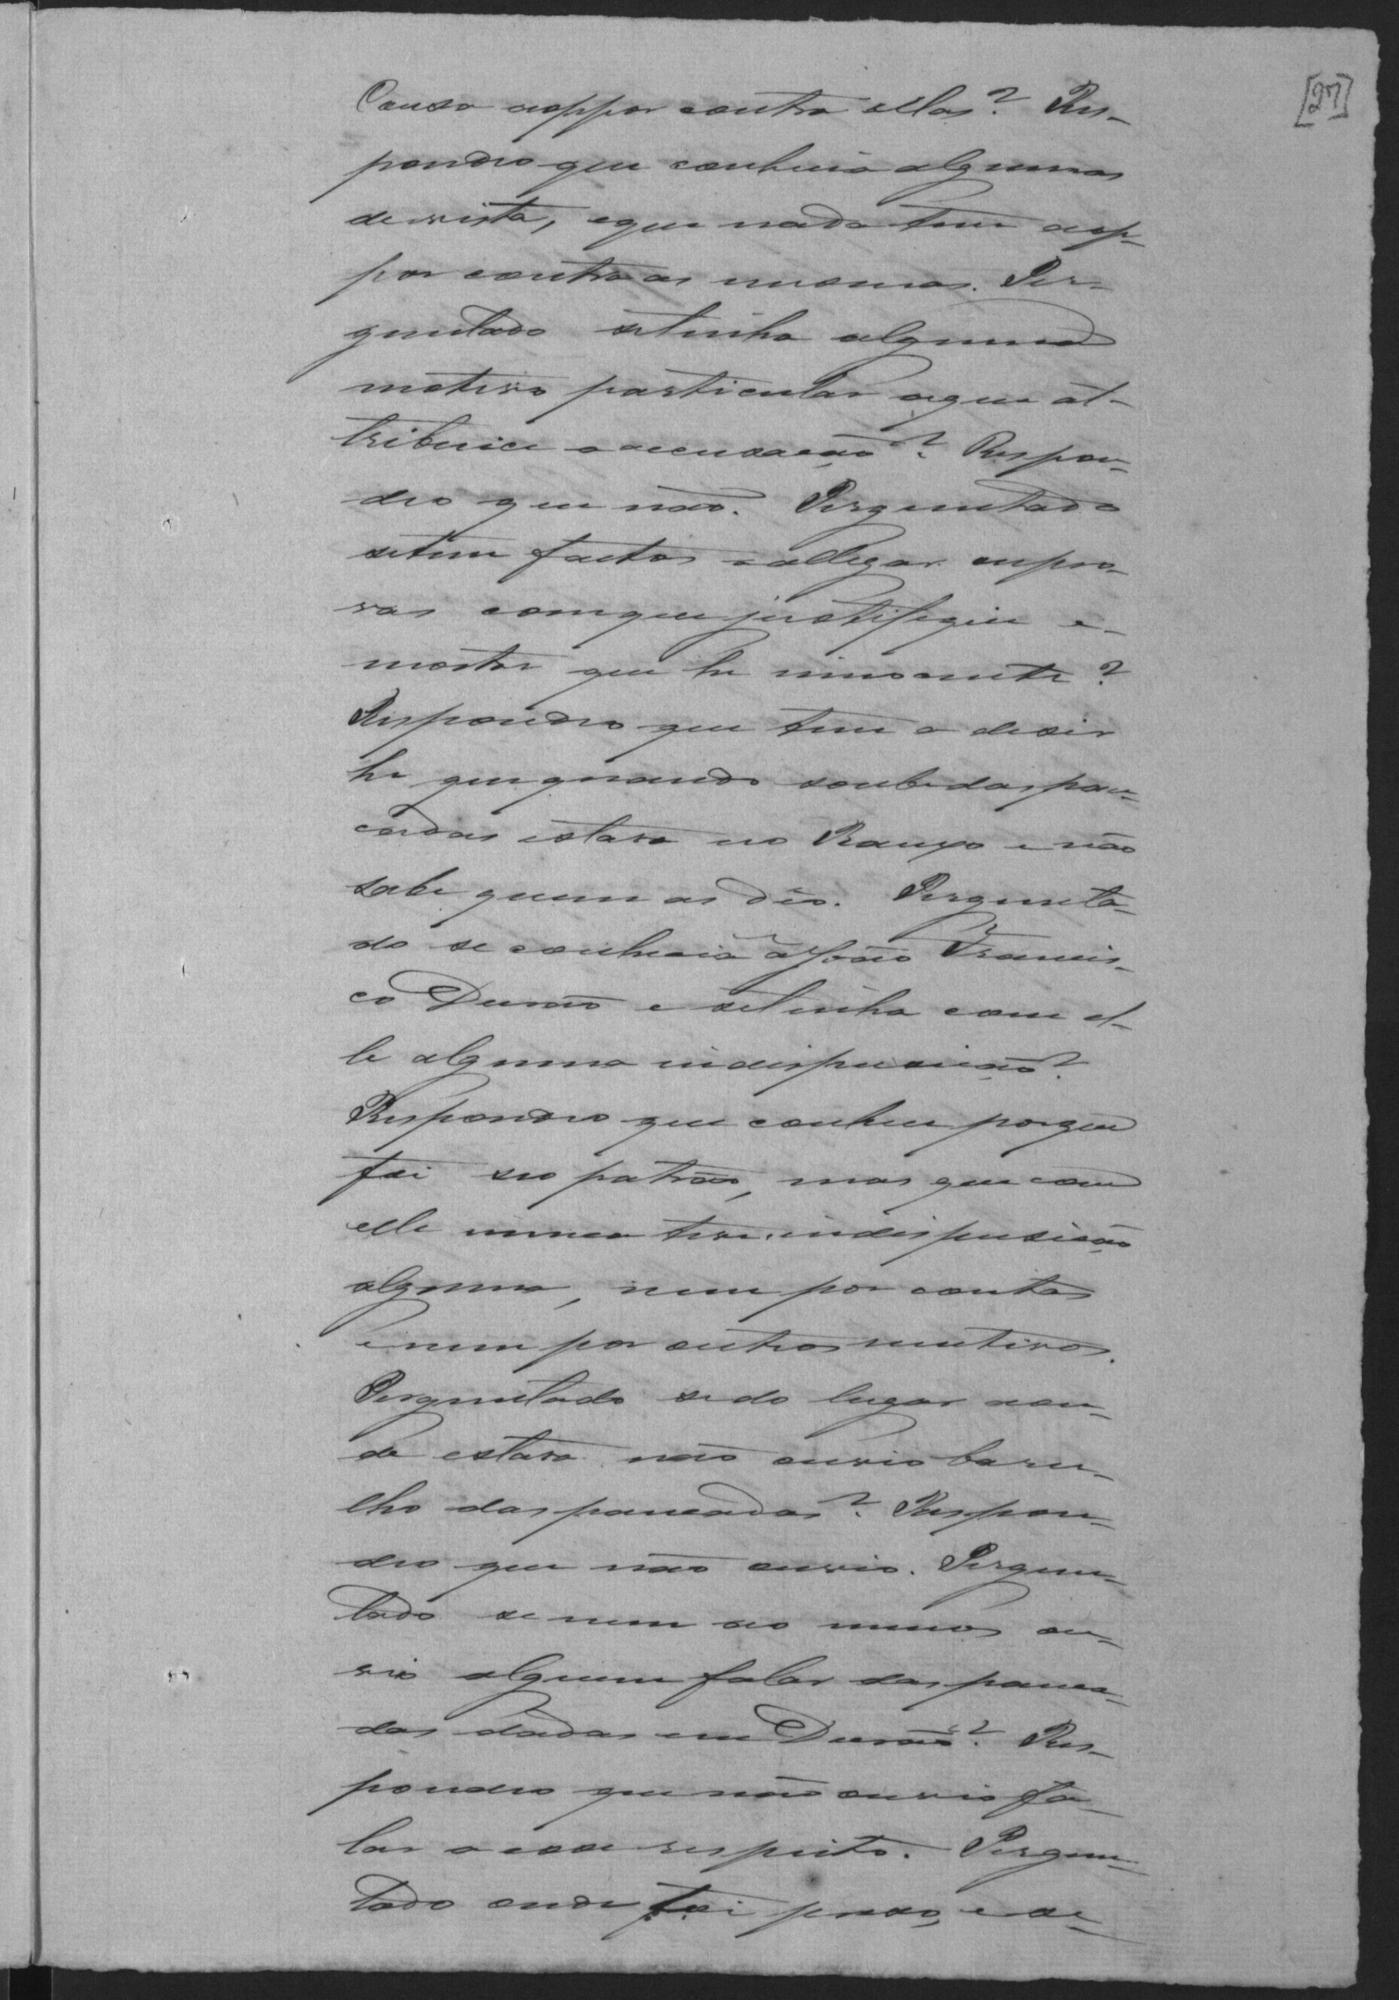 [27]
Cousa a oppor contra ellas? Res-
pondeo que conhecia algumas
de vista, e que nada tem a op-
por contra as mesmas. Per-
guntado se tinha algum
motivo particular a que at-
tribuice a accusação? Respon-
deo que não. Perguntado
se tem factos a allegar ou pro-
vas com que justifique e
mostre que he innocente?
Respondeo que tem a desir
he que quando soube das pan-
cadas estava no Rancho e não
sabe quem as deo. Pergunta-
do se conhecia a João Francis-
co Durão e se tinha com el-
le alguma indisposição?
Respondeo que conhece porque
foi seo patrão, mas que com
elle nunca teve indisposição
alguma, nem por contas
e nem por outros mutivos.
Perguntado se do lugar aon-
de estava não ouvio baru-
lho das pancadas? Respon-
deo que não ouvio. Pergun-
tado se nem ao menos ou-
vio alguem falar das panca-
das dadas em Durão? Res-
pondeo que não ouvio fa-
lar a esse respeito. Pergun-
tado onde foi preso, e se